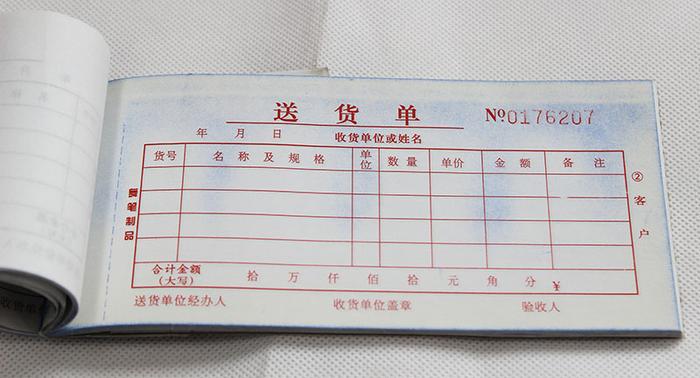 送货单 №0176207
年 月 日 收货单位或姓名
货号 名称及规格 单位 数量 单价 金额 备注
②客户
笔制品
合计金额(大写) 拾 万 仟 佰 拾 元 角 分 ¥
送货单位经办人 收货单位盖章 验收人
收货单位